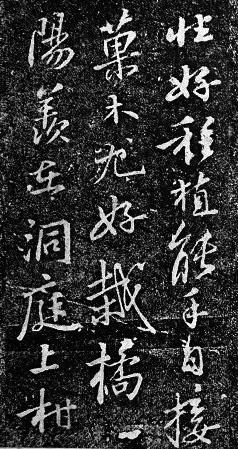 性好種植能手自接
菓木尤好栽橘
陽羨在洞庭上柑